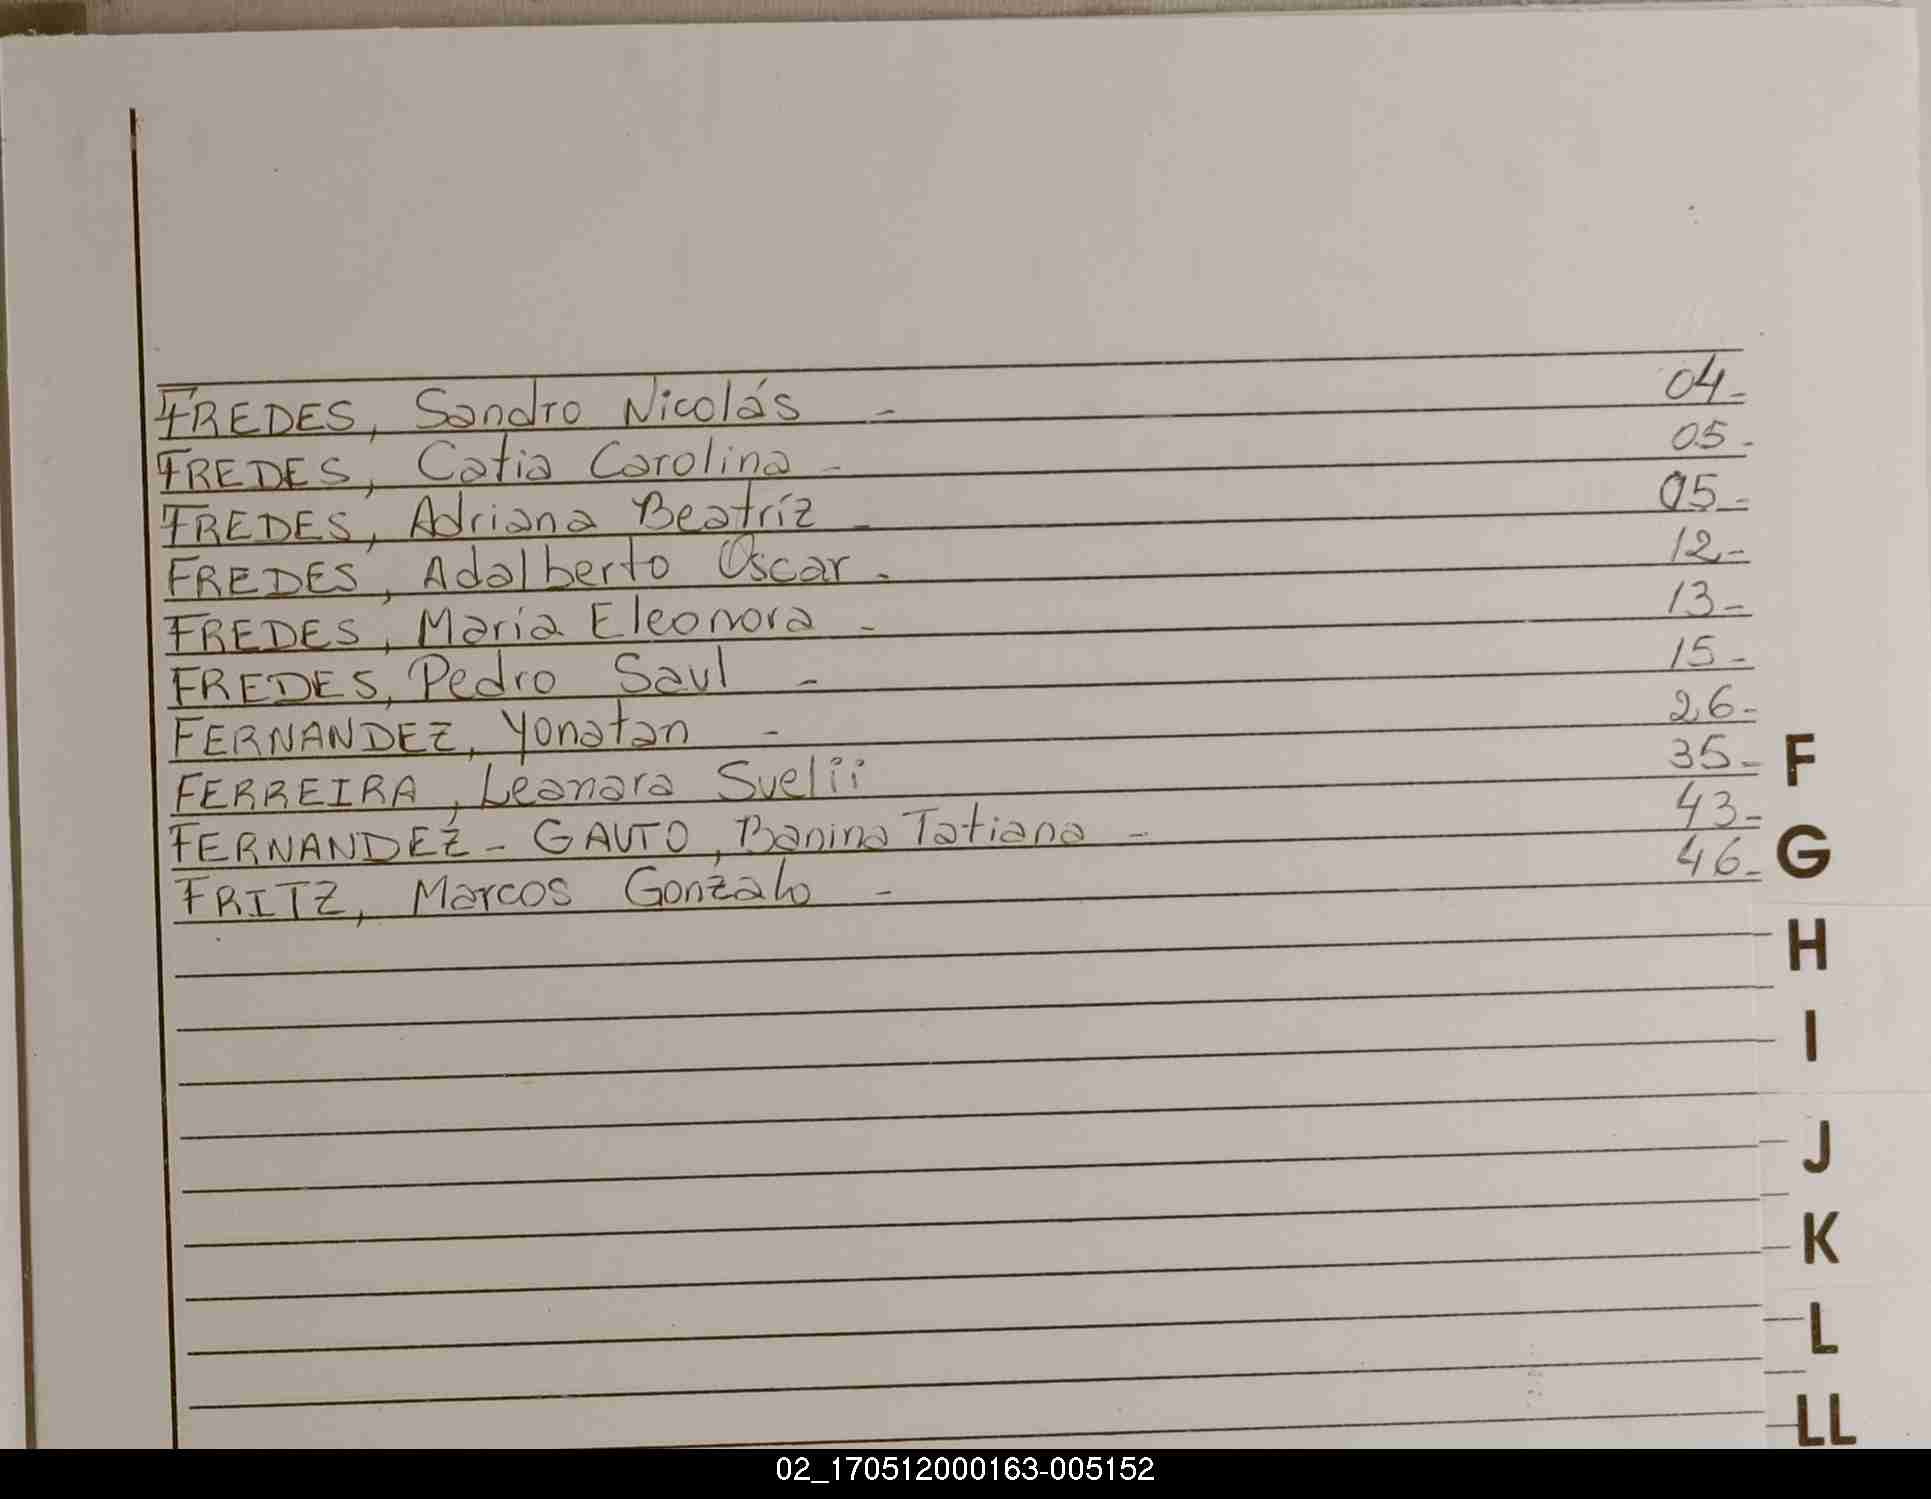 FREDES, Sandro Nicolás - 04-
FREDES, Catia Carolina - 05-
FREDES, Adriana Beatríz - 05-
FREDES, Adalberto Oscar - 12-
FREDES, María Eleonora - 13-
FREDES, Pedro Saul - 15-
FERNANDEZ, Yonatan - 26-
FERREIRA, Leanara Suelii 35-
FERNANDEZ - GAUTO, Banina Tatiana - 43-
FRITZ, Marcos Gonzalo - 46-
F
G
H
I
J
K
L
LL
02_170512000163-005152